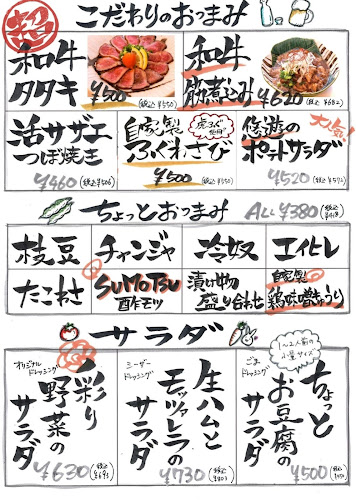 こだわりのおつまみ
和牛
タタキ
¥500
(税込 ¥550)
和牛
筋煮込み
¥620
(税込 ¥682)
活サザエ
つぼ焼き
¥460
(税込 ¥506)
自家製
虎ふぐ
使用!
ふぐわさび
¥500
(税込 ¥550)
悠遊の
ポテトサラダ
大人気!
¥520
(税込 ¥572)
ちょっとおつまみ
ALL ¥380
(税込 ¥418)
枝豆
チャンジャ
冷奴
エイヒレ
たこわさ
SUMOTSU
酢モツ
漬け物
盛り合わせ
自家製
鶏味噌きゅうり
サラダ
オリジナル
ドレッシング
彩り
野菜の
サラダ
¥630
(税込 ¥693)
シーザー
ドレッシング
生ハムと
モッツァレラの
サラダ
¥730
(税込 ¥803)
ごま
ドレッシング
1~2人前の
小量サイズ
ちょっと
お豆腐の
サラダ
¥500
(税込 ¥550)